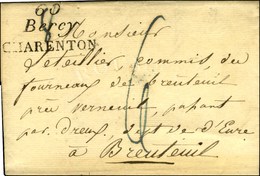 60
Bercy
CHARENTON
Monsieur
Letellier, commis du
fourneaux de breuteuil
près verneuil, passant
par Dreux, dépt de l'Eure
à Breuteuil